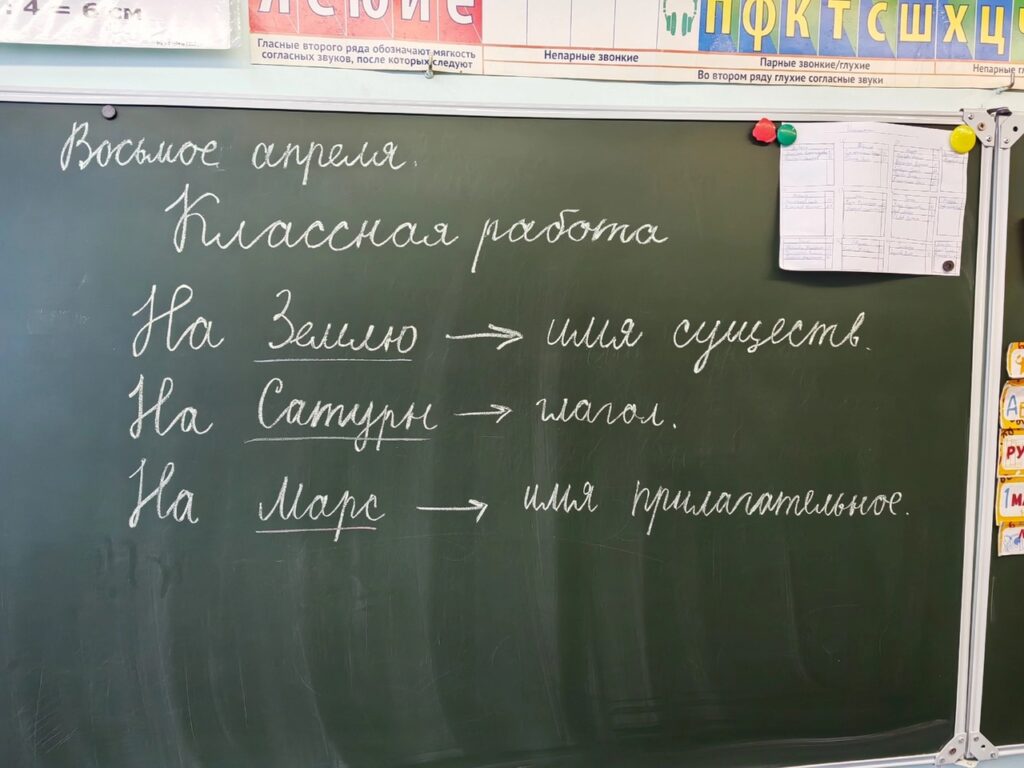 : 4 = 6 см
Я Ё Ю И Е
Гласные второго ряда обозначают мягкость
согласных звуков, после которых следуют
Непарные звонкие
П Ф К Т С Ш Х Ц
Парные звонкие/глухие
Во втором ряду глухие согласные звуки
Непарные
Восьмое апреля.
Классная работа
На Землю → имя существ.
На Сатурн → глагол.
На Марс → имя прилагательное.
РУ